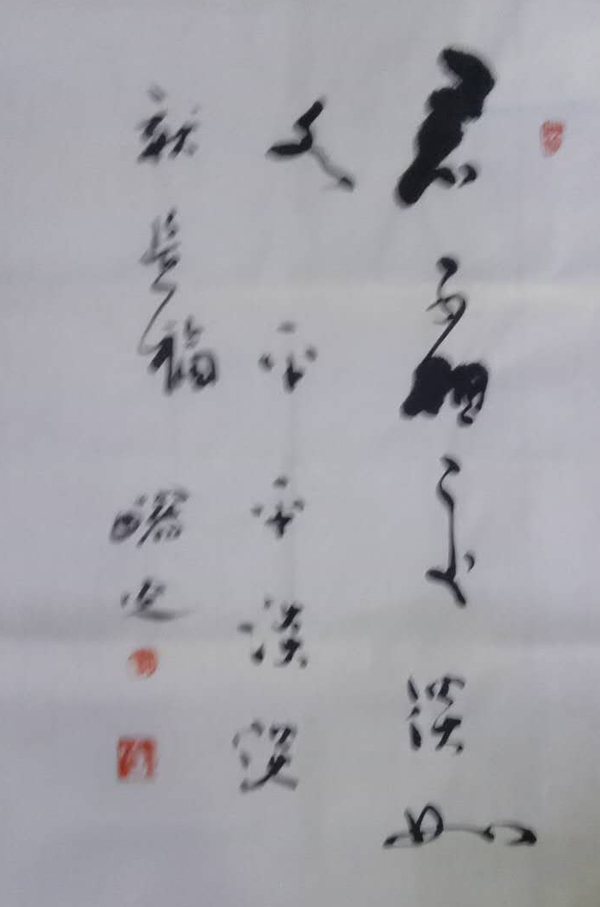 君子相交淡如
水平平淡淡
就是福